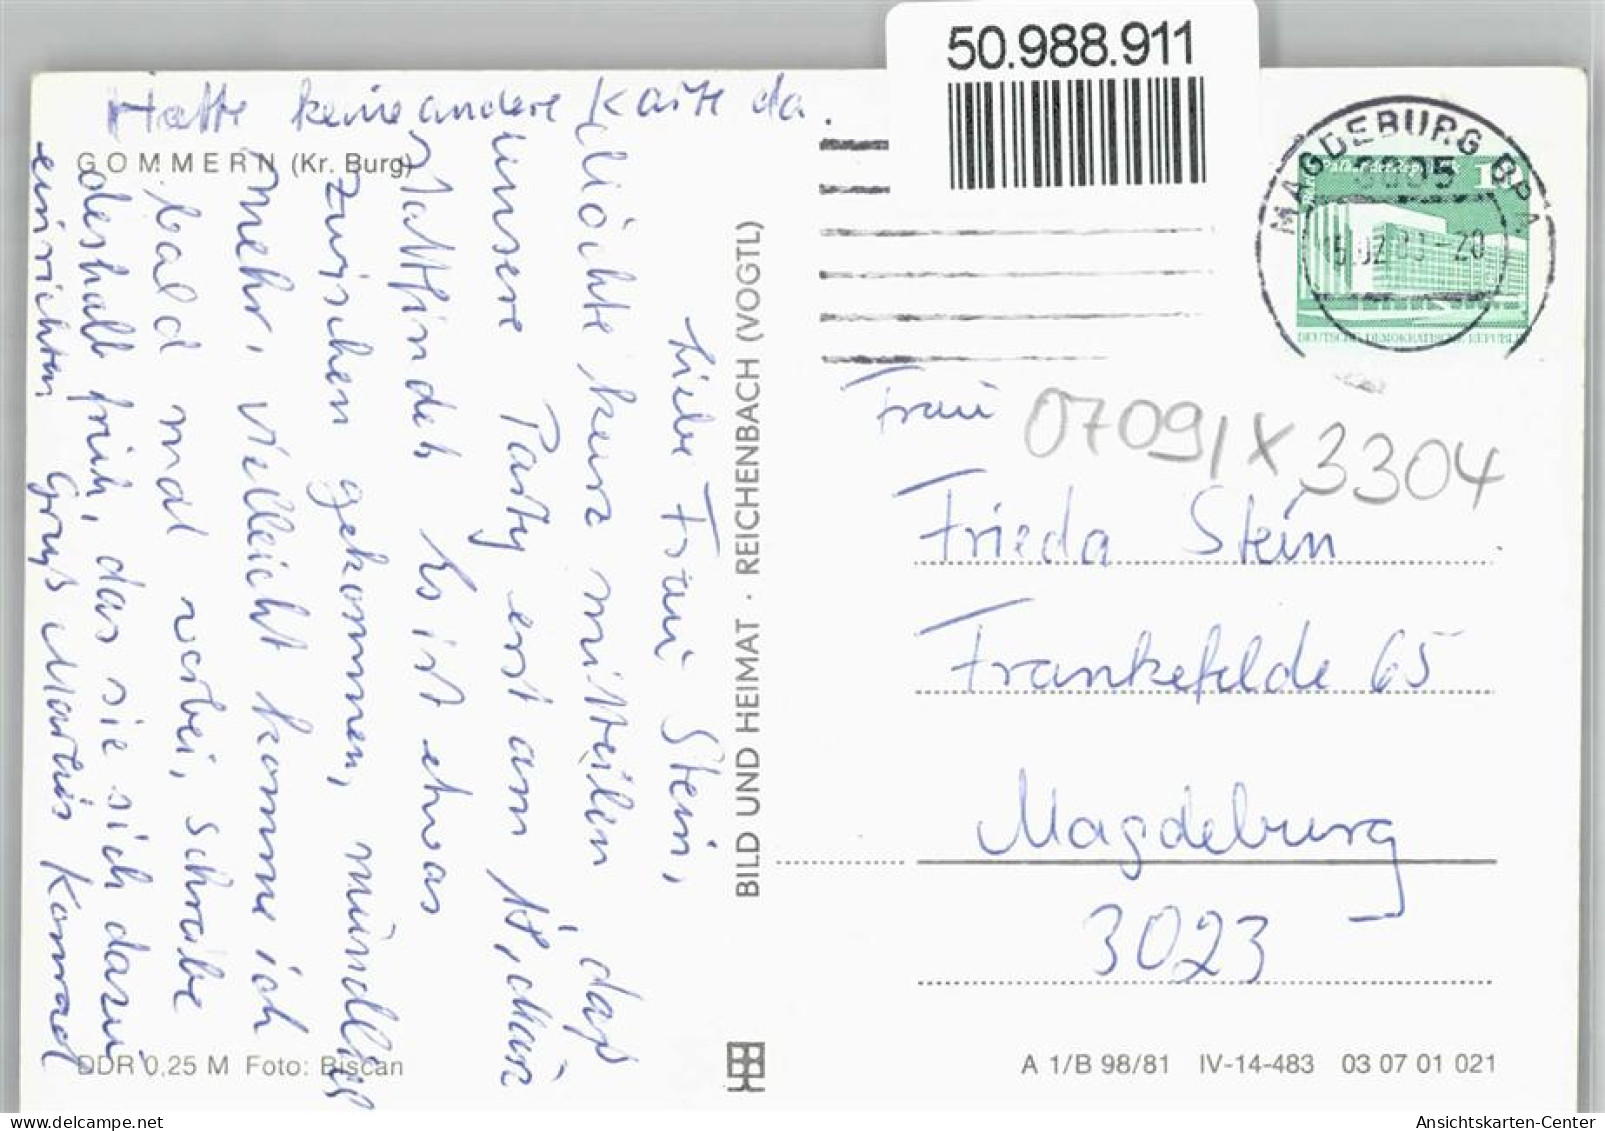 50.988.911
Hatte keine andere Karte da.
GOMMERN (Kr. Burg)
Liebe Frau Stein,
Möchte kurz mitteilen, daß
unsere Party erst am 17. März
stattfindet. Es ist etwas
zwischen gekommen, mündlich
mehr, vielleicht komme ich
bald mal vorbei, schreibe
deshalb früh, das sie sich dazu
einrichten Gruß Konrad
BILD UND HEIMAT · REICHENBACH (VOGTL)
MAGDEBURG BPA
10
DEUTSCHE DEMOKRATISCHE REPUBLIK
Frau
07091 X 3304
Frieda Stein
Frankefelde 65
Magdeburg
3023
DDR 0,25 M Foto: Biscan
A 1/B 98/81 IV-14-483 03 07 01 021
Ansichtskarten-Center